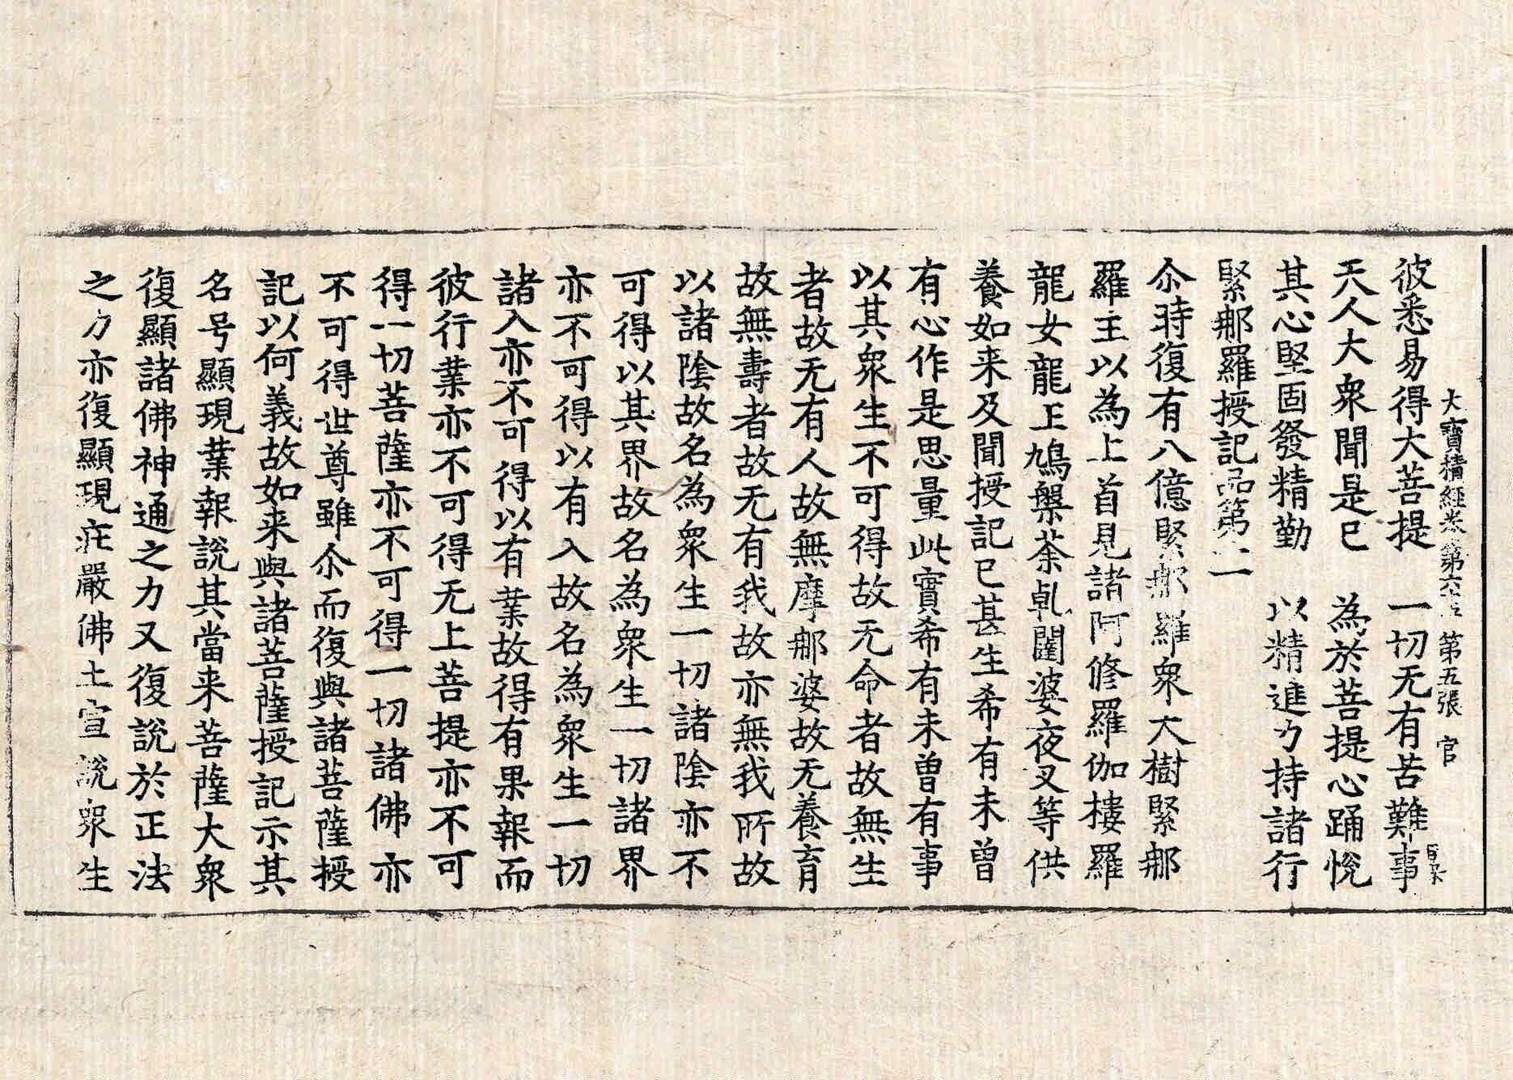 大寶積經卷第六 第五張 官
彼悉易得大菩提 一切无有苦難事
天人大衆聞是已 為於菩提心踊悅
其心堅固發精勤 以精進力持諸行
緊那羅授記品第
尒時復有八億緊那羅衆大樹緊那
羅王以為上首見諸阿修羅伽樓羅
龍女龍王鳩槃荼乹闥婆夜叉等供
養如来及聞授記已甚生希有未曾
有心作是思量此實希有未曾有事
以其衆生不可得故无命者故無生
者故无有人故無摩那婆故无養育
故無壽者故无有我故亦無我所故
以諸陰故名為衆生一切諸陰亦不
可得以其界故名為衆生一切諸界
亦不可得以有入故名為衆生一切
諸入亦不可得以有業故得有果報而
彼行業亦不可得无上菩提亦不可
得一切菩薩亦不可得一切諸佛亦
不可得世尊雖尒而復與諸菩薩授
記以何義故如来與諸菩薩授記示其
名号顯現業報說其當来菩薩大衆
復顯諸佛神通之力又復說於正法
之力亦復顯現莊嚴佛土宣說衆生